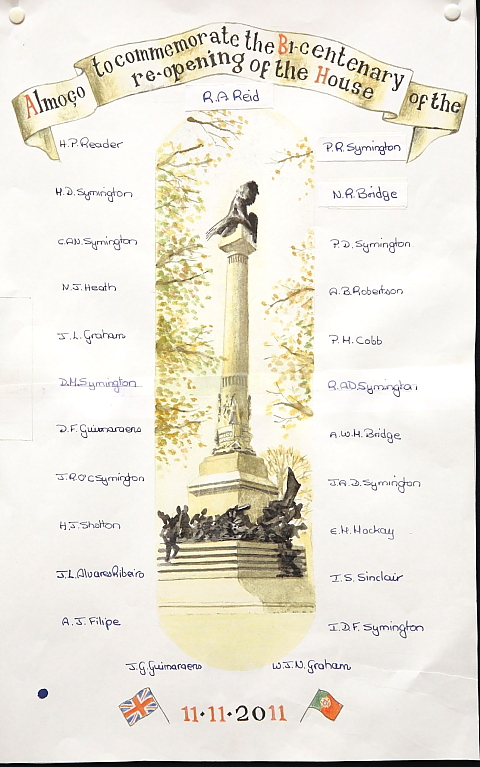 Almoço to commemorate the Bi-centenary of the
re-opening of the House
R.A Reid
H.P. Reader
P.R. Symington
H.D. Symington
N.R. Bridge
C.A.N. Symington
P.D. Symington
N.J. Heath
A.B. Robertson
J.L. Graham
P.M. Cobb
D.M. Symington
R.A.D. Symington
D.F. Guimaraens
A.W.H. Bridge
J.R.O'C Symington
J.A.D. Symington
H.J. Shotton
E.H. Mackay
J.L. Alvares Ribeiro
I.S. Sinclair
A.J. Filipe
I.D.F. Symington
J.G. Guimaraens
W.J.N. Graham
11·11·2011